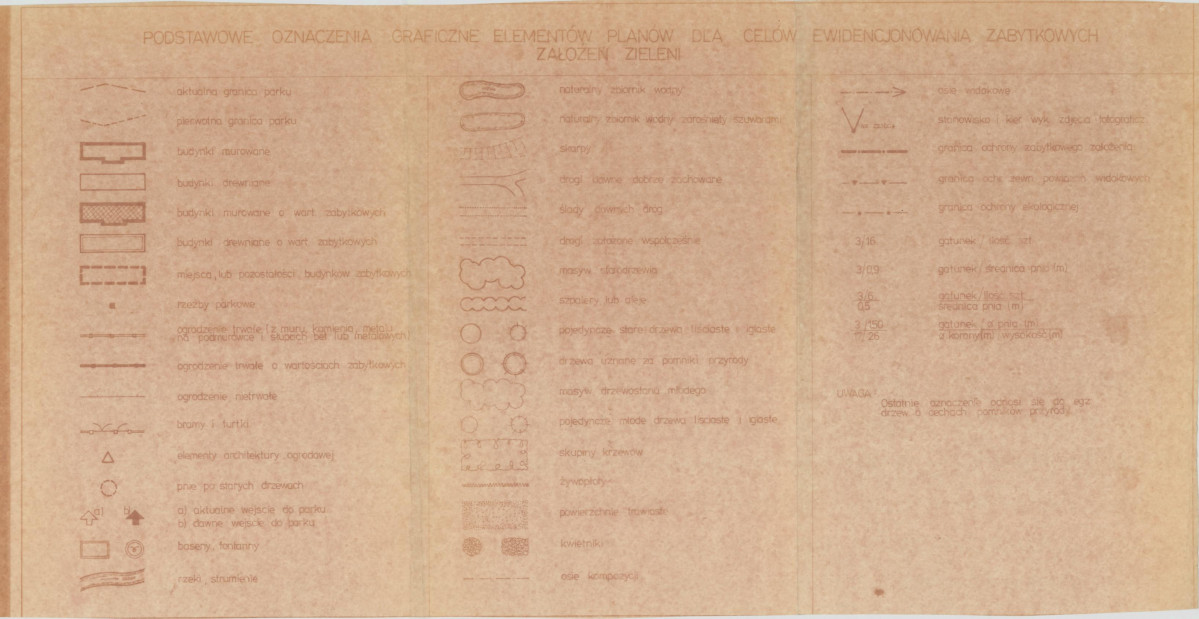 PODSTAWOWE OZNACZENIA GRAFICZNE ELEMENTÓW PLANÓW DLA CELÓW EWIDENCJONOWANIA ZABYTKOWYCH
ZAŁOŻEŃ ZIELENI
aktualna granica parku
pierwotna granica parku
budynki murowane
budynki drewniane
budynki murowane o wart zabytkowych
budynki drewniane o wart zabytkowych
miejsca lub pozostałości budynków zabytkowych
rzeźby parkowe
ogrodzenie trwałe (z muru, kamienia, metalu
na podmurówce i słupach bet lub metalowych)
ogrodzenie trwałe o wartościach zabytkowych
ogrodzenie nietrwałe
bramy i furtki
elementy architektury ogrodowej
pnie po starych drzewach
a) b)
a) aktualne wejście do parku
b) dawne wejście do parku
baseny, fontanny
rzeki, strumienie
naturalny zbiornik wodny
naturalny zbiornik wodny zarośnięty szuwarami
skarpy
drogi dawne dobrze zachowane
ślady dawnych dróg
drogi założone współcześnie
masyw starodrzewia
szpalery lub aleje
pojedyncze stare drzewa liściaste i iglaste
drzewa uznane za pomniki przyrody
masyw drzewostanu młodego
pojedyncze młode drzewa liściaste i iglaste
skupiny krzewów
żywopłoty
powierzchnie trawiaste
kwietniki
osie kompozycji
osie widokowe
stanowisko i kier wyk zdjęcia fotograficz
granica ochrony zabytkowego założenia
granica ochr zewn powiązań widokowych
granica ochrony ekologicznej
3/16 gatunek/ilość szt
3/0,9 gatunek/średnica pnia (m)
3/6 gatunek/ilość szt
0,5 średnica pnia (m)
3/150 gatunek
26
UWAGA
Ostatnie oznaczenie odnosi się do egz
drzew o cechach pomników przyrody